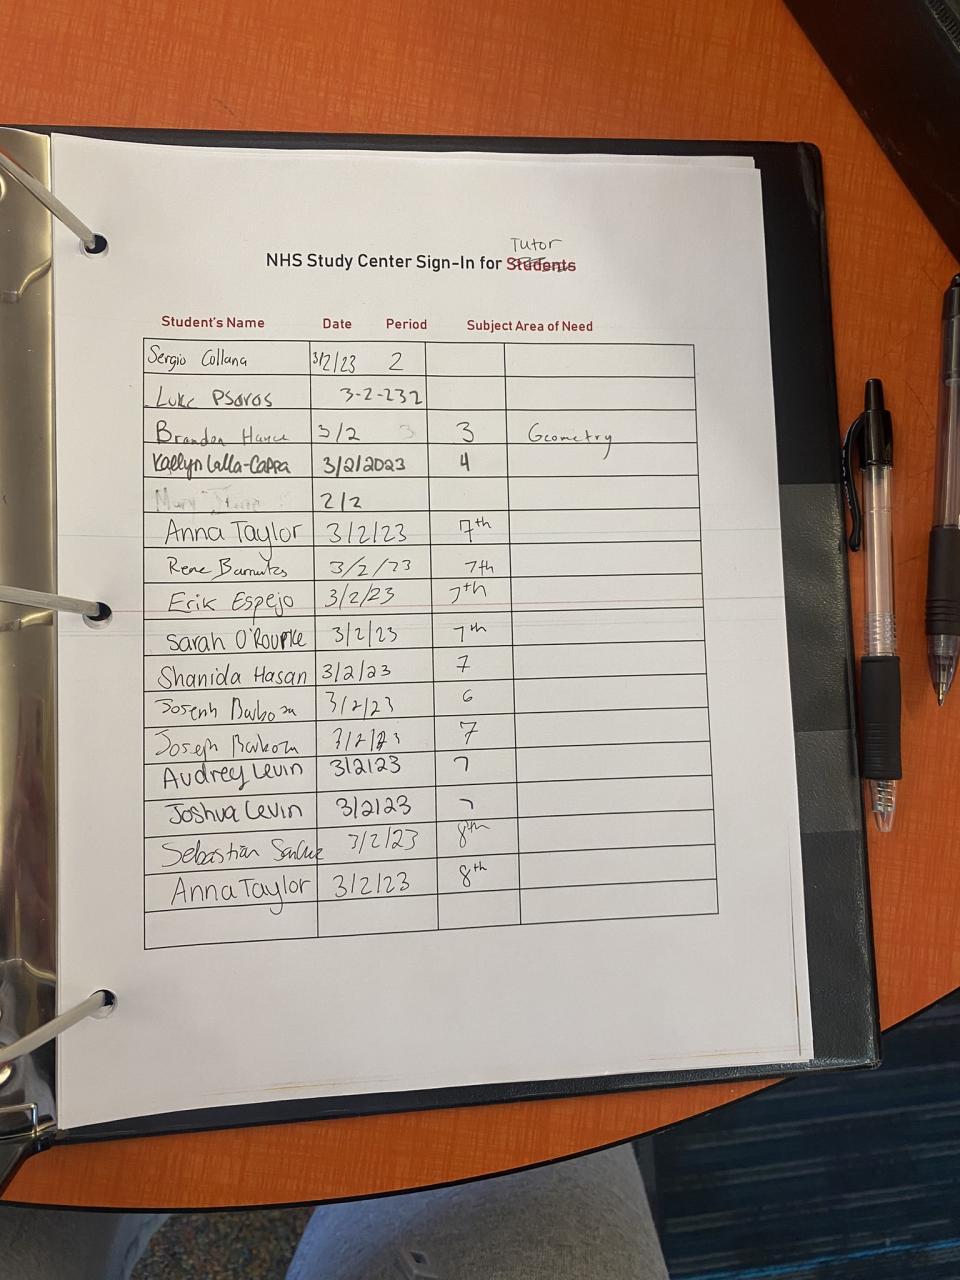 Tutor
NHS Study Center Sign-In for Students
Student's Name Date Period Subject Area of Need
Sergio Collana 3/2/23 2
Luke Psoros 3-2-23 2
Brandon 3/2 3 3 Geometry
Kaelyn Lalla-Cappa 3/2/2023 4
Mary 2/2
Anna Taylor 3/2/23 7th
Rene 3/2/23 7th
Erik Espejo 3/2/23 7th
Sarah O'Rourke 3/2/23 7th
Shanida Hasan 3/2/23 7
Joseph Barboza 3/2/23 6
Joseph Barboza 3/2/23 7
Audrey Levin 3/2/23 7
Joshua Levin 3/2/23 7
Sebastian 3/2/23 8th
Anna Taylor 3/2/23 8th